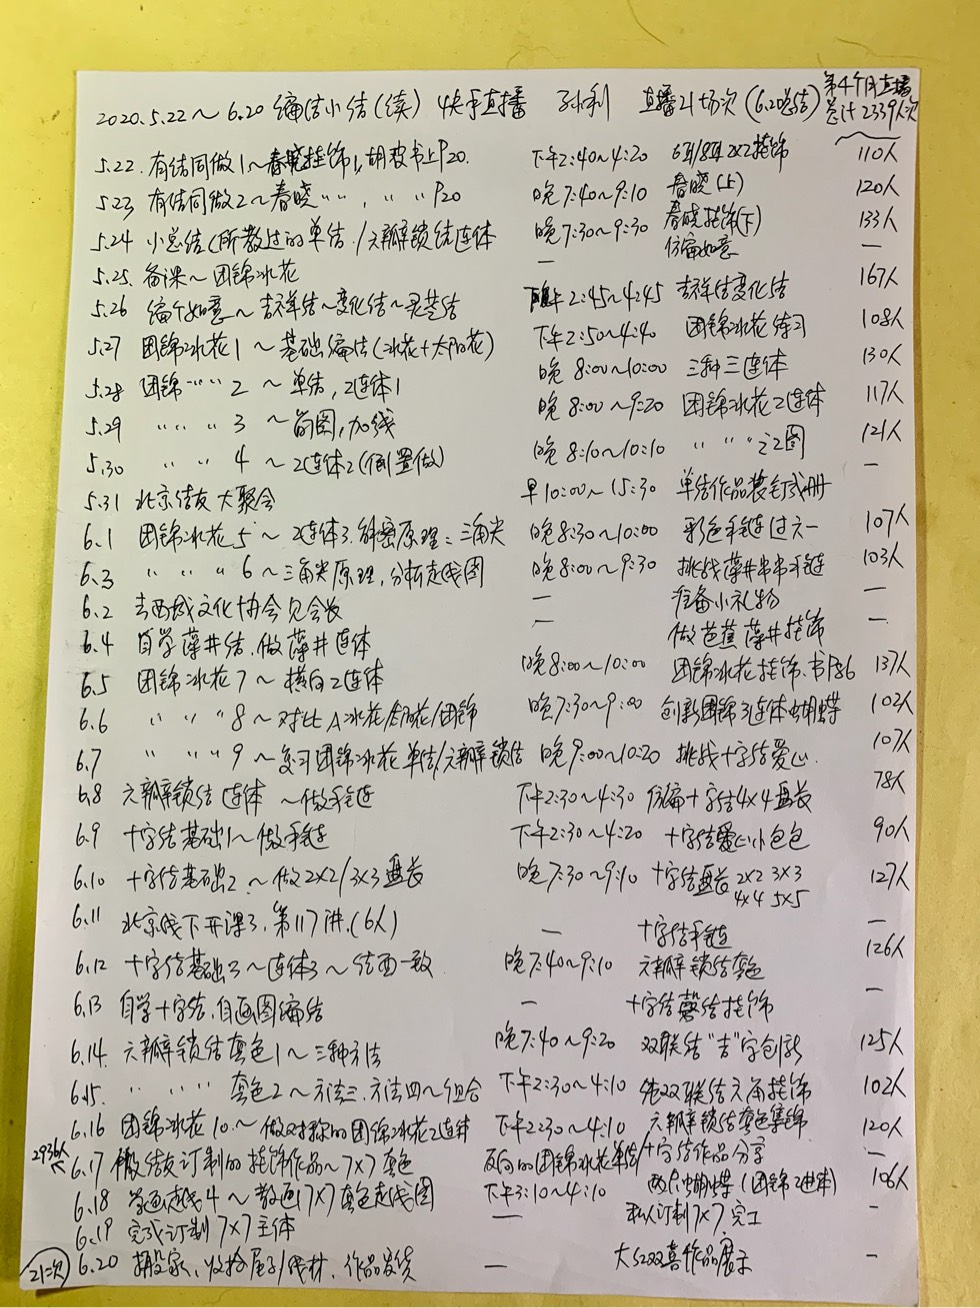 2020.5.22～6.20 编结小结(续) 快手直播 孙利 直播21场次(6.20总结) 第4个月直播 总计2339人次
5.22. 有结同做1～春晓挂饰1,胡教书上P20. 下午2:40～4:20 2×2挂饰 110人
5.23 有结同做2～春晓〃〃,〃〃P20 晚7:40～9:10 春晓(上) 120人
5.24 小总结(所教过的单结/六瓣锁结连体 晚7:30～9:30 春晓挂饰(下) 仿编如意 133人
5.25. 备课～团锦冰花 — —
5.26 编个如意～吉祥结～变化结～灵芝结 下午2:45～4:45 吉祥结变化结 167人
5.27 团锦冰花1～基础编法(冰花+太阳花) 下午2:50～4:40 团锦冰花练习 108人
5.28 团锦〃〃2～单结,2连体1 晚8:00～10:00 三种三连体 130人
5.29 〃〃〃3～画图,加线 晚8:00～9:20 团锦冰花2连体 117人
5.30 〃〃4～2连体2(倒置做) 晚8:10～10:10 〃〃〃之2图 121人
5.31 北京结友大聚会 早10:00～15:30 单结作品装订成册 —
6.1 团锦冰花5～2连体3.解密原理:三角尖 晚8:30～10:00 彩色手链过六一 107人
6.3 〃〃〃6～三角尖原理,分析走线图 晚8:00～9:30 挑战藻井串串手链 103人
6.2 去西城文化协会见会长 — 准备小礼物 —
6.4 自学藻井结.做藻井连体 — 做芭蕉藻井挂饰 —
6.5 团锦冰花7～横向2连体 晚8:00～10:00 团锦冰花挂饰.书P56 137人
6.6 〃〃〃8～对比A冰花/太阳花/团锦 晚7:30～9:00 创新团锦3连体蝴蝶 102人
6.7 〃〃〃9～复习团锦冰花单结/六瓣锁结 晚9:00～10:20 挑战十字结爱心. 107人
6.8 六瓣锁结连体～做手链 下午2:30～4:30 仿编十字结4×4盘长 78人
6.9 十字结基础1～做手链 下午2:30～4:20 十字结爱心小包包 90人
6.10 十字结基础2～做2×2/3×3盘长 晚7:30～9:10 十字结盘长 2×2 3×3 4×4 5×5 127人
6.11 北京线下开课3.第117讲.(6人) — 十字结手链 —
6.12 十字结基础3～连体3～结面一致 晚7:40～9:10 六瓣锁结套色 126人
6.13 自学十字结.自画图编结 — 十字结磬结挂饰 —
6.14. 六瓣锁结套色1～三种方法 晚7:40～9:20 双联结“吉”字创新 125人
6.15. 〃〃〃〃 套色2～方法三.方法四～组合 下午2:30～4:10 纯双联结六角挂饰 102人
6.16 团锦冰花10.～做对称的团锦冰花2连体 下午2:30～4:10 六瓣锁结套色集锦 120人
2936人 6.17 做结友订制的挂饰作品～7×7套色 反向的团锦冰花单结/十字结作品分享
6.18 学画走线4～教画7×7套色走线图 下午3:10～4:10 两只蝴蝶(团锦2连体) 106人
6.19 完成订制7×7主体 — 私人订制7×7.完工 —
21次 6.20 搬家、收拾屋子/线材、作品发货 — 大红双喜作品展示 —